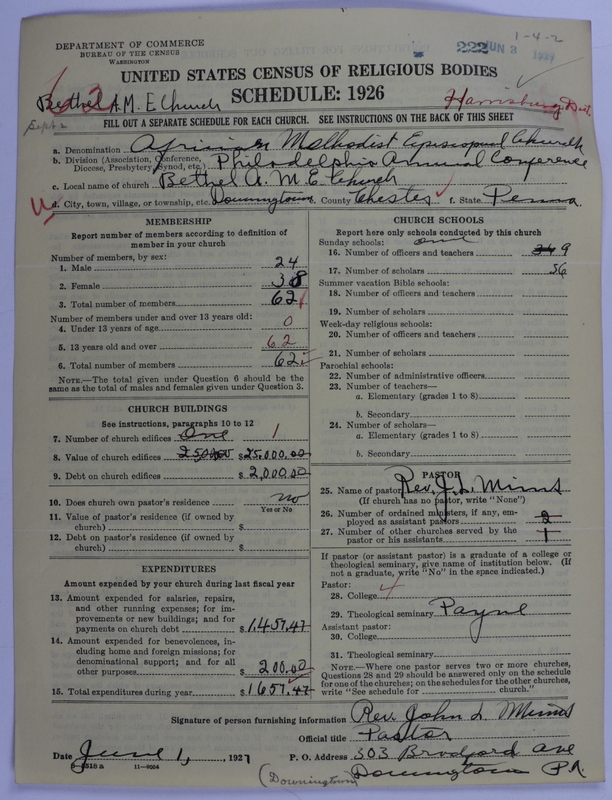 1-4-2
DEPARTMENT OF COMMERCE
BUREAU OF THE CENSUS
WASHINGTON
222 JUN 3 1927
UNITED STATES CENSUS OF RELIGIOUS BODIES
Bethel A.M.E Church
SCHEDULE: 1926
Harrisburg Dist.
Sept 2
FILL OUT A SEPARATE SCHEDULE FOR EACH CHURCH. SEE INSTRUCTIONS ON THE BACK OF THIS SHEET
a. Denomination African Methodist Episcopal Church
b. Division (Association, Conference, Diocese, Presbytery, Synod, etc.) Philadelphia Annual Conference
c. Local name of church Bethel A. M. E. Church
d. City, town, village, or township, etc. Downingtown e. County Chester f. State Penna.
MEMBERSHIP
Report number of members according to definition of
member in your church
Number of members, by sex:
1. Male 24
2. Female 38
3. Total number of members 62
Number of members under and over 13 years old:
4. Under 13 years of age 0
5. 13 years old and over 62
6. Total number of members 62
NOTE.—The total given under Question 6 should be the
same as the total of males and females given under Question 3.
CHURCH BUILDINGS
See instructions, paragraphs 10 to 12
7. Number of church edifices One 1
8. Value of church edifices $25,000.00
9. Debt on church edifices $2,000.00
10. Does church own pastor's residence no
Yes or No
11. Value of pastor's residence (if owned by
church) $
12. Debt on pastor's residence (if owned by
church) $
EXPENDITURES
Amount expended by your church during last fiscal year
13. Amount expended for salaries, repairs,
and other running expenses; for im-
provements or new buildings; and for
payments on church debt $1,457.47
14. Amount expended for benevolences, in-
cluding home and foreign missions; for
denominational support; and for all
other purposes $200.00
15. Total expenditures during year $1657.47
CHURCH SCHOOLS
Report here only schools conducted by this church
Sunday schools: one
16. Number of officers and teachers 9
17. Number of scholars 56
Summer vacation Bible schools:
18. Number of officers and teachers
19. Number of scholars
Week-day religious schools:
20. Number of officers and teachers
21. Number of scholars
Parochial schools:
22. Number of administrative officers
23. Number of teachers—
a. Elementary (grades 1 to 8)
b. Secondary
24. Number of scholars—
a. Elementary (grades 1 to 8)
b. Secondary
PASTOR
25. Name of pastor Rev. J. L. Mims
(If church has no pastor, write "None")
26. Number of ordained ministers, if any, em-
ployed as assistant pastors 2
27. Number of other churches served by the
pastor or his assistants 1
If pastor (or assistant pastor) is a graduate of a college or
theological seminary, give name of institution below. (If
not a graduate, write "No" in the space indicated.)
Pastor:
28. College
29. Theological seminary Payne
Assistant pastor:
30. College
31. Theological seminary
NOTE.—Where one pastor serves two or more churches,
Questions 28 and 29 should be answered only on the schedule
for one of the churches; on the schedules for the other churches,
write "See schedule for church."
Signature of person furnishing information Rev. John L. Mims
Official title Pastor
Date June 1, 1927 P. O. Address 303 Bradford Ave
8—8518 a 11—9004
(Downingtown) Downingtown Pa.